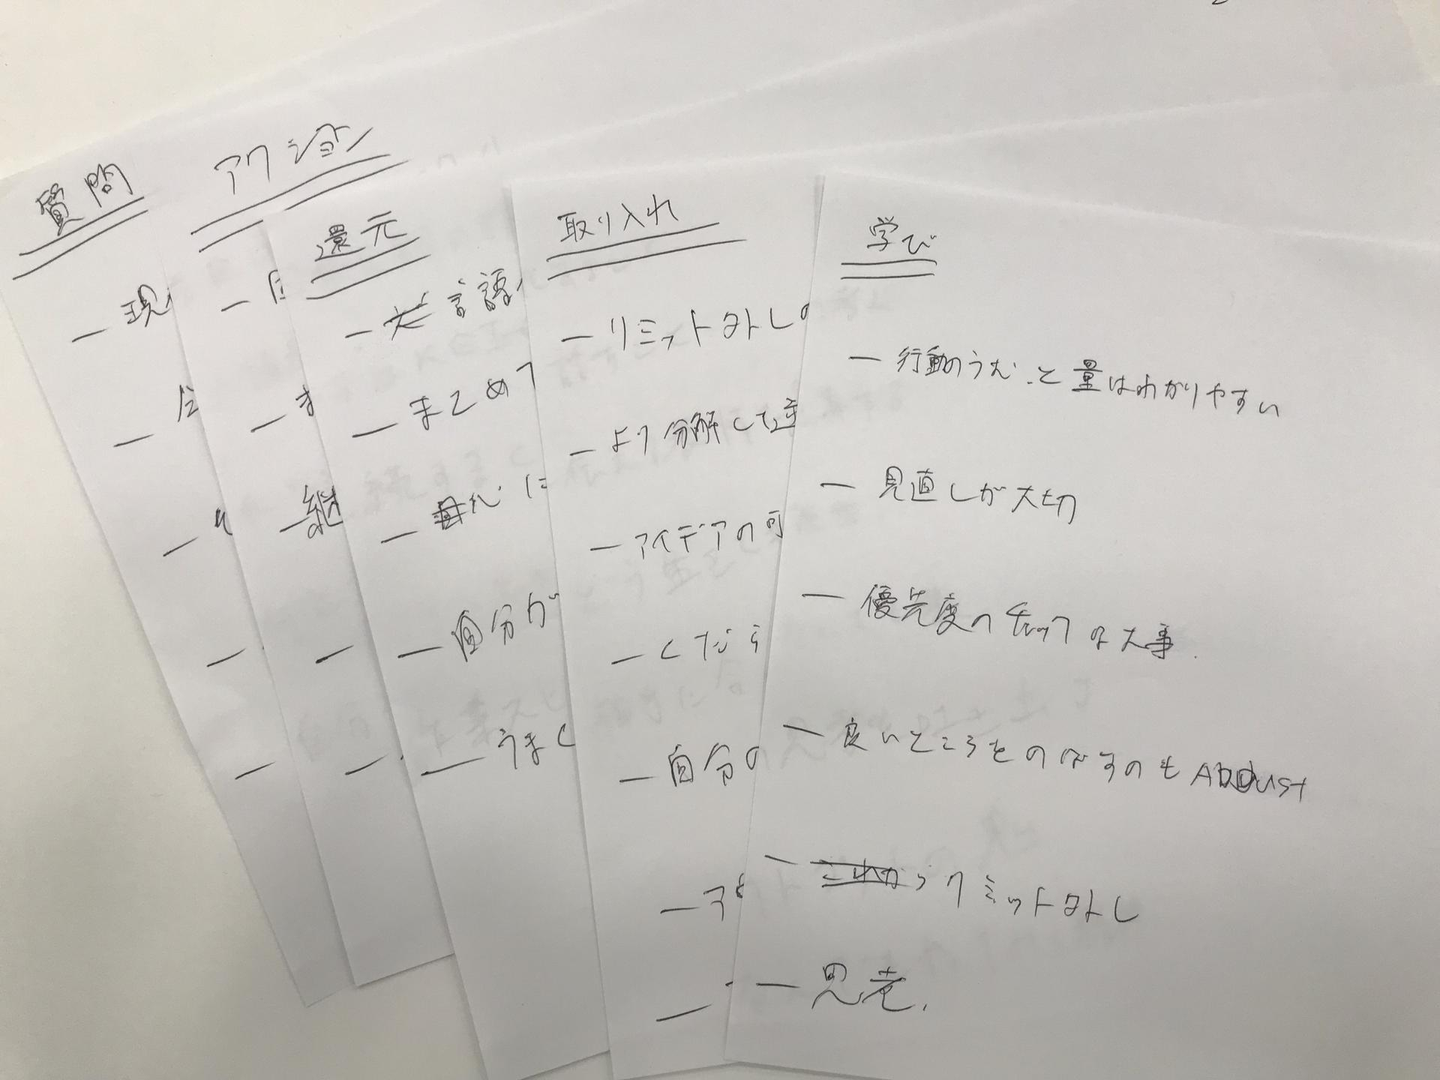 質問
現
アクション
継
還元
言語化
まとめて
自分が
うまく
取り入れ
リミット外しの
より分解して
アイデアの可
くだら
自分の
学び
行動のうむ、と量はわかりやすい
見直しが大切
優先度のチェックは大事.
良いところをのばすのもADJUST
これから リミット外し
思考.